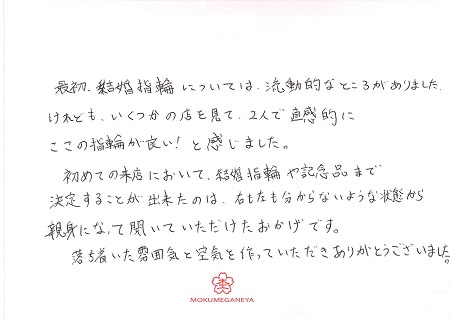 最初、結婚指輪については、流動的なところがありました。
けれども、いくつかの店を見て、2人で直感的に
ここの指輪が良い！と感じました。
初めての来店において、結婚指輪や記念品まで
決定することが出来たのは、右も左も分からないような状態から
親身になって聞いていただけたおかげです。
落ち着いた雰囲気と空気を作っていただきありがとうございました。
MOKUMEGANEYA